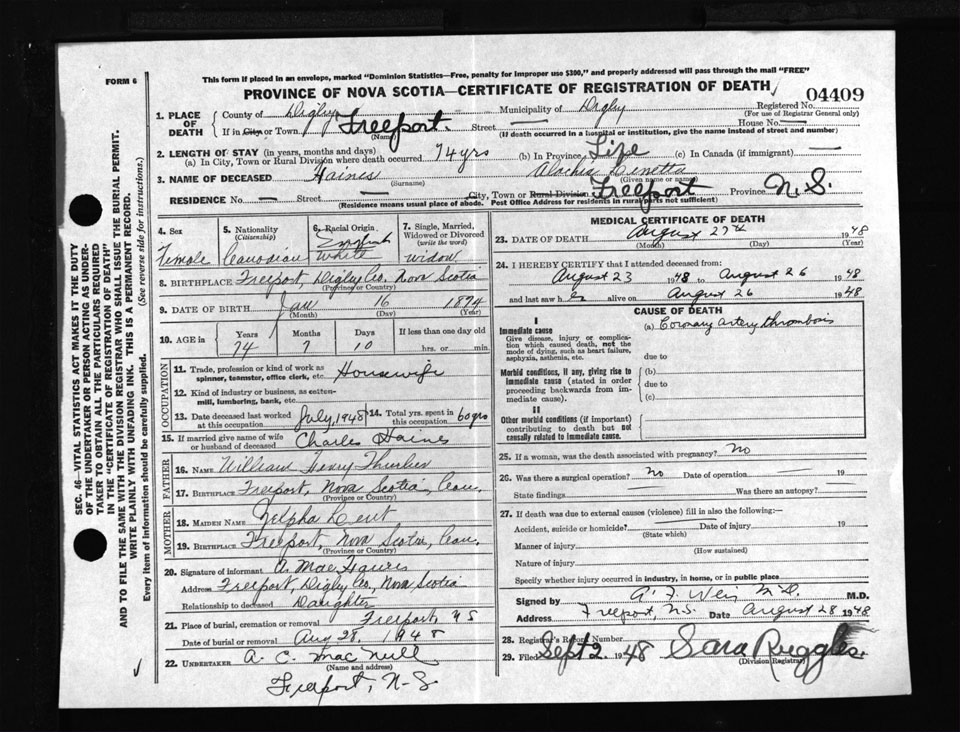 This form if placed in an envelope, marked "Dominion Statistics—Free, penalty for improper use $300," and properly addressed will pass through the mail "FREE"
FORM 6
PROVINCE OF NOVA SCOTIA—CERTIFICATE OF REGISTRATION OF DEATH
04409
SEC. 46—VITAL STATISTICS ACT MAKES IT THE DUTY
OF THE UNDERTAKER OR PERSON ACTING AS UNDER-
TAKER TO OBTAIN ALL THE PARTICULARS REQUIRED
IN THE "CERTIFICATE OF REGISTRATION OF DEATH"
AND TO FILE THE SAME WITH THE DIVISION REGISTRAR WHO SHALL ISSUE THE BURIAL PERMIT.
WRITE PLAINLY WITH UNFADING INK. THIS IS A PERMANENT RECORD.
Every item of information should be carefully supplied. (See reverse side for instructions.)
1. PLACE OF DEATH County of Digby Municipality of Digby Registered No.
(For use of Registrar General only)
If in City or Town Freeport. Street — House No. —
(Name) (If death occurred in a hospital or institution, give the name instead of street and number)
2. LENGTH OF STAY (in years, months and days)
(a) In City, Town or Rural Division where death occurred 74 yrs (b) In Province Life (c) In Canada (if immigrant) —
3. NAME OF DECEASED Haines
(Surname) (Given name or names)
RESIDENCE No. — Street — City, Town or Rural Division Freeport Province N.S.
(Residence means usual place of abode. Post Office Address for residents in rural parts not sufficient)
4. Sex Female
5. Nationality (Citizenship) Canadian
6. Racial Origin English White
7. Single, Married, Widowed or Divorced (write the word) widow
8. BIRTHPLACE Freeport, Digby Co. Nova Scotia
(Province or Country)
9. DATE OF BIRTH Jan 16 1874
(Month) (Day) (Year)
10. AGE in Years Months Days If less than one day old
74 7 10 hrs. or min.
OCCUPATION
11. Trade, profession or kind of work as spinner, teamster, office clerk, etc. Housewife
12. Kind of industry or business, as cotton-mill, lumbering, bank, etc.
13. Date deceased last worked at this occupation July, 1948 14. Total yrs. spent in this occupation 60 yrs
15. If married give name of wife or husband of deceased Charles Haines
FATHER
16. NAME William Henry Thurber
17. BIRTHPLACE Freeport, Nova Scotia, Can.
(Province or Country)
MOTHER
18. MAIDEN NAME Zelpha Lent
19. BIRTHPLACE Freeport, Nova Scotia, Can.
(Province or Country)
20. Signature of informant A. Mae Haines
Address Freeport, Digby Co., Nova Scotia
Relationship to deceased Daughter
21. Place of burial, cremation or removal Freeport, N S
Date of burial or removal Aug 28, 1948
22. UNDERTAKER A. C. MacNeill
(Name and address)
Freeport, N.S.
MEDICAL CERTIFICATE OF DEATH
23. DATE OF DEATH August 27th 1948
(Month) (Day) (Year)
24. I HEREBY CERTIFY that I attended deceased from:
August 23 1948 to August 26 1948
and last saw her alive on August 26 1948
CAUSE OF DEATH
I
Immediate cause (a) Coronary artery thrombosis
Give disease, injury or complication which caused death, not the mode of dying, such as heart failure, asphyxia, asthenia, etc.
due to
Morbid conditions, if any, giving rise to immediate cause (stated in order proceeding backwards from immediate cause). (b)
due to
(c)
II
Other morbid conditions (if important) contributing to death but not causally related to immediate cause.
25. If a woman, was the death associated with pregnancy? No
26. Was there a surgical operation? no Date of operation 19
State findings Was there an autopsy?
27. If death was due to external causes (violence) fill in also the following:—
Accident, suicide or homicide? Date of injury 19
(State which)
Manner of injury
(How sustained)
Nature of injury
Specify whether injury occurred in industry, in home, or in public place
Signed by M.D. M.D.
Address Freeport, N.S. Date August 28 1948
28. Registrar's Record Number
29. Filed Sept 2 1948 Sara Ruggles.
(Division Registrar)